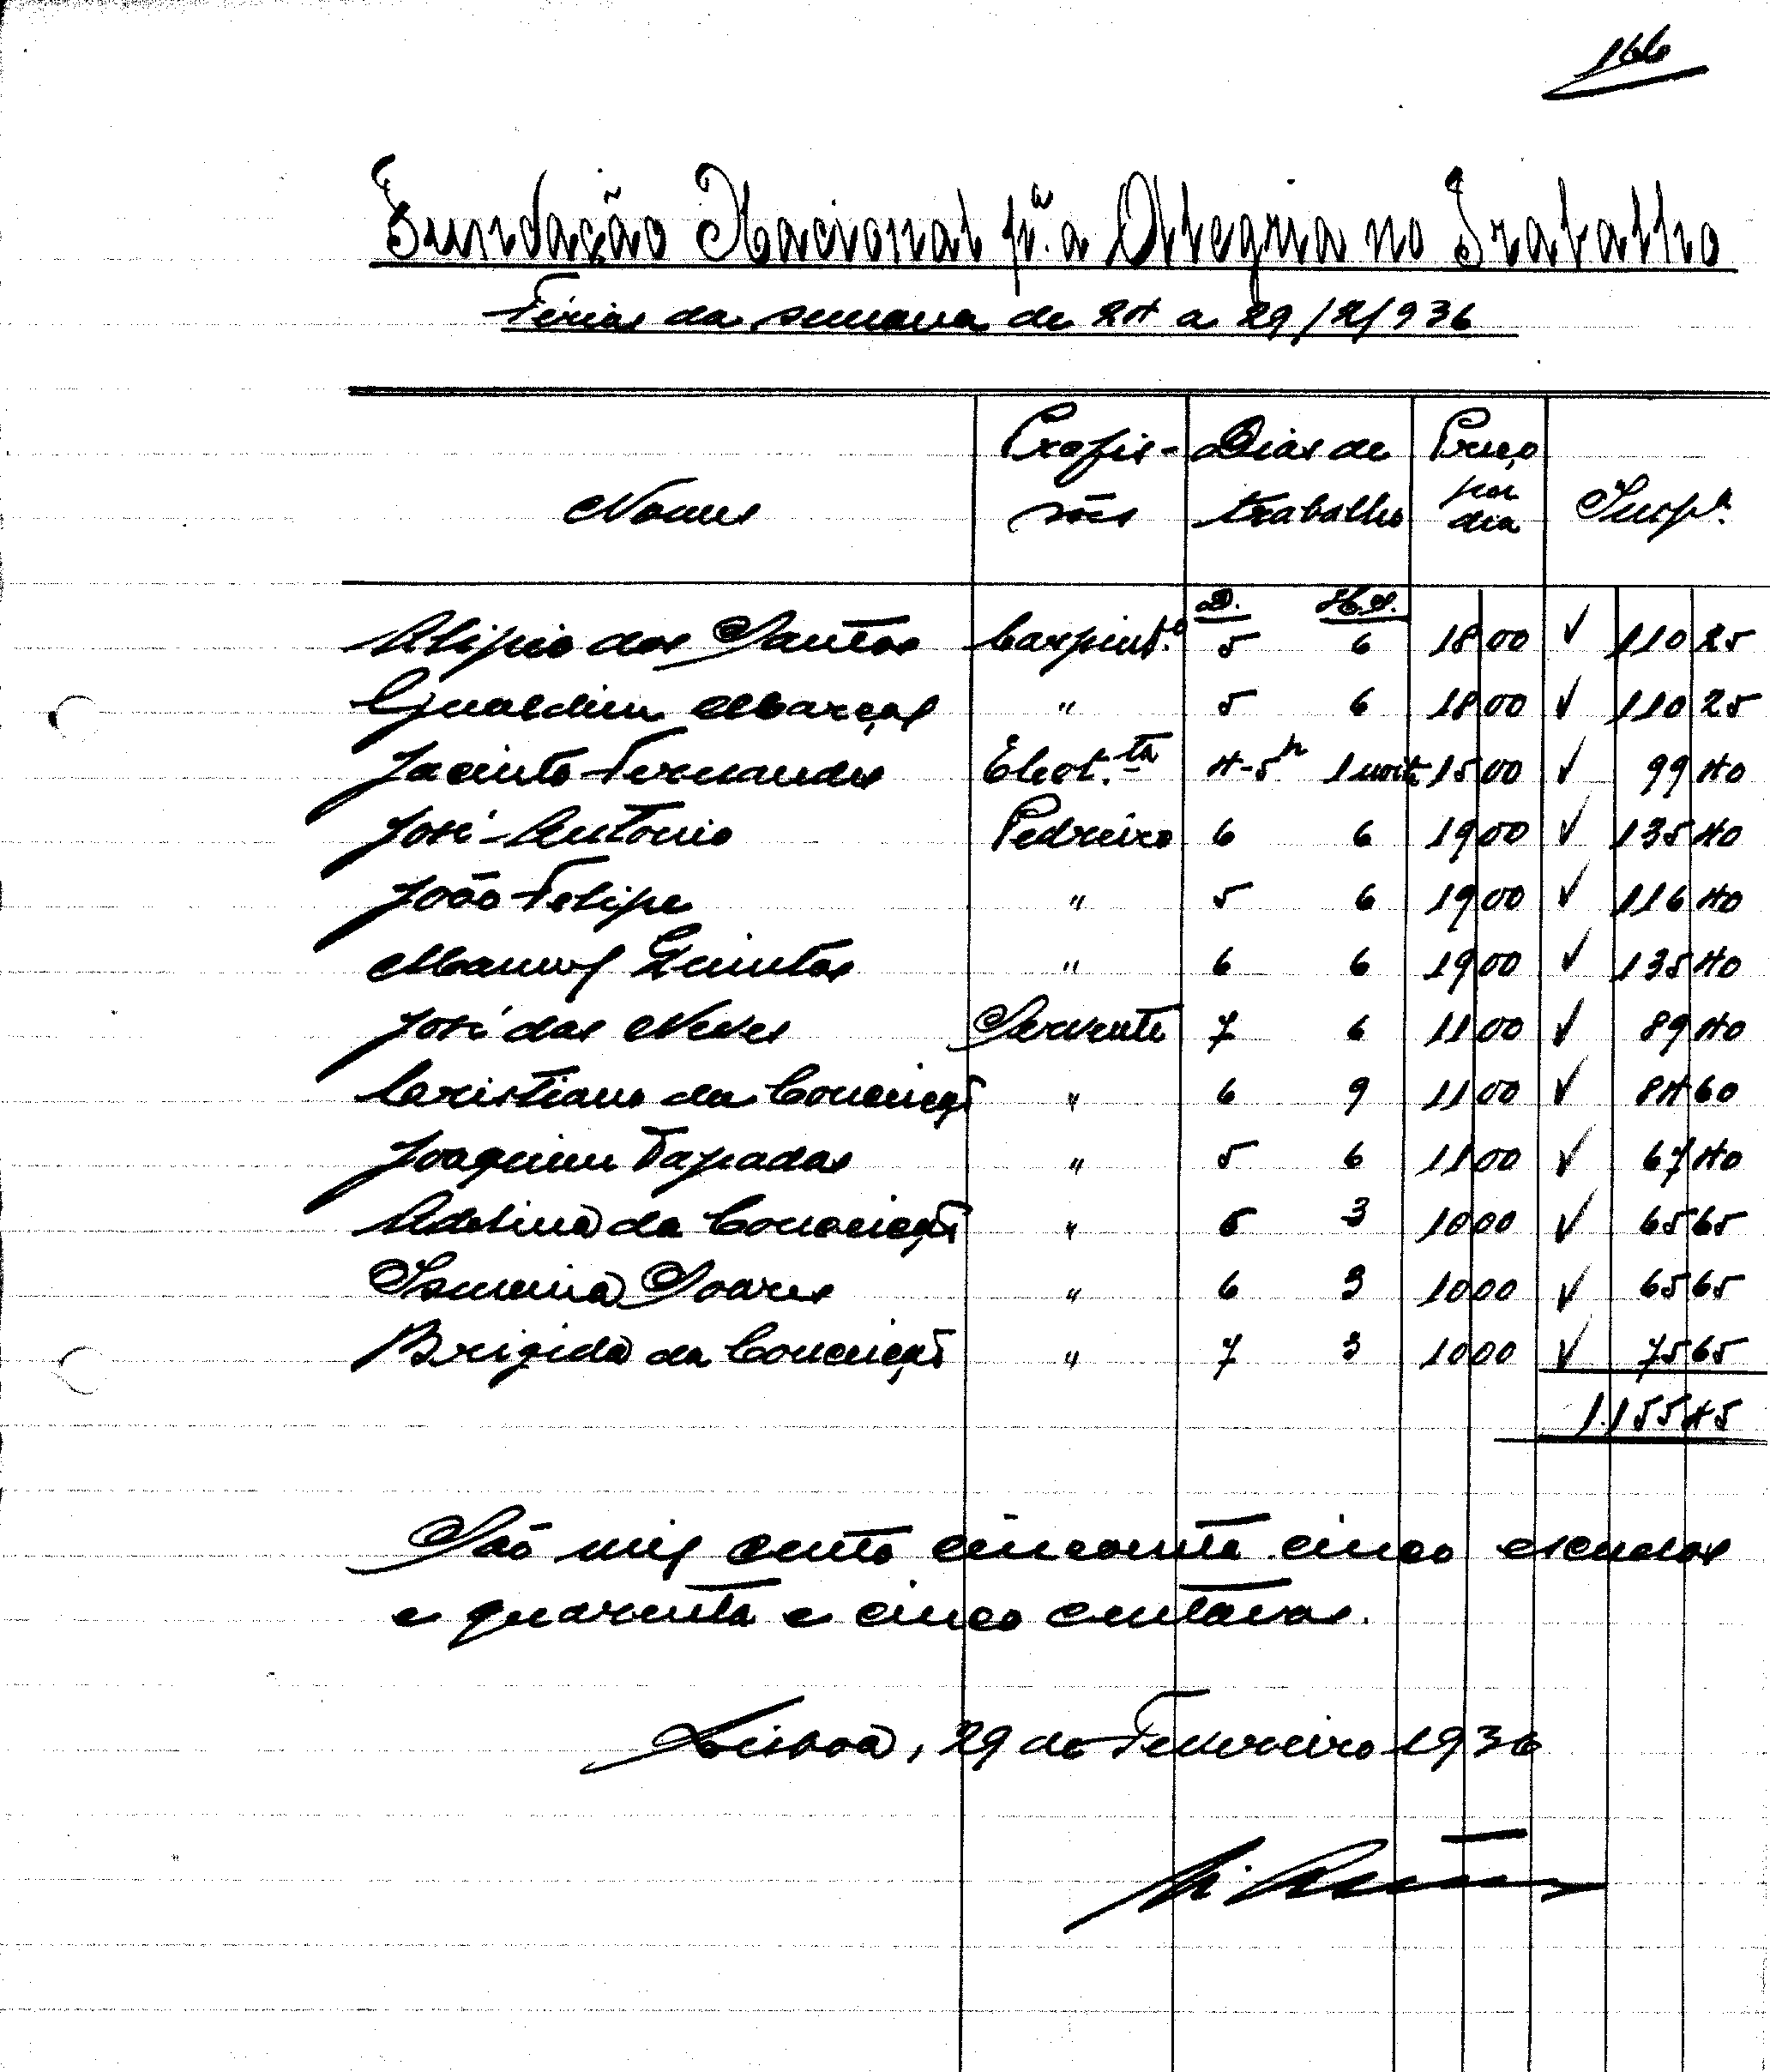 166
Fundação Nacional pª a Alegria no Trabalho
Férias da semana de 24 a 29/2/936
Nomes Profis- sões Dias de trabalho Preço por dia Impª
D. H.S.
Alipio dos Santos Carpintº 5 6 18 00 ✓ 110 25
Gualdim Marçal " 5 6 18 00 ✓ 110 25
Jacinto Fernandes Elect.ta 4-5h 1 noite 15 00 ✓ 99 40
José Antonio Pedreiro 6 6 19 00 ✓ 135 40
João Felipe " 5 6 19 00 ✓ 116 40
Manuel Quintas " 6 6 19 00 ✓ 135 40
José das Neves Servente 7 6 11 00 ✓ 89 40
Cristiano da Conceição " 6 9 11 00 ✓ 84 60
Joaquim Tapadas " 5 6 11 00 ✓ 67 40
Adelina da Conceição " 6 3 10 00 ✓ 65 65
Ismenia Soares " 6 3 10 00 ✓ 65 65
Brigida da Conceição " 7 3 10 00 ✓ 75 65
1.155 45
São mil cento cincoenta cinco escudos
e quarenta e cinco centavos.
Lisboa, 29 de Fevereiro 1936